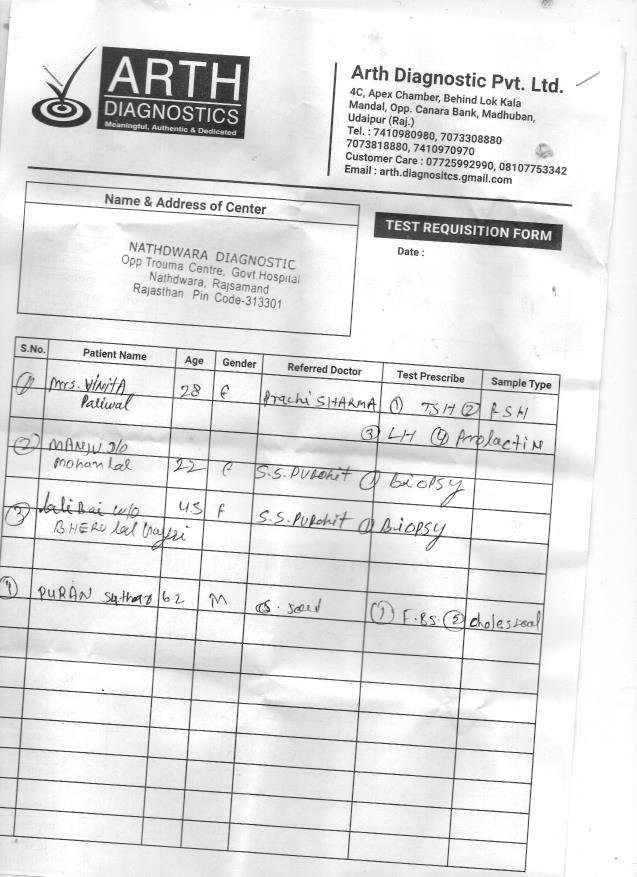 ARTH
DIAGNOSTICS
Meaningful, Authentic & Dedicated
Arth Diagnostic Pvt. Ltd.
4C, Apex Chamber, Behind Lok Kala
Mandal, Opp. Canara Bank, Madhuban,
Udaipur (Raj.)
Tel. : 7410980980, 7073308880
7073818880, 7410970970
Customer Care : 07725992990, 08107753342
Email : arth.diagnositcs.gmail.com
Name & Address of Center
NATHDWARA DIAGNOSTIC
Opp Trouma Centre, Govt.Hospital
Nathdwara, Rajsamand
Rajasthan Pin Code-313301
TEST REQUISITION FORM
Date :
S.No. Patient Name Age Gender Referred Doctor Test Prescribe Sample Type
① Mrs. VINITA 28 F Prachi SHARMA ① TSH ② FSH
Paliwal
③ LH ④ Prolactin
② MANJU D/O
Mohan lal 22 F S.S. PUROHIT ① BIOPSY
③ Lali Bai W/O 45 F S.S. PUROHIT ① BIOPSY
BHERU lal
④ PURAN Suthar 62 M ① F.BS. ②